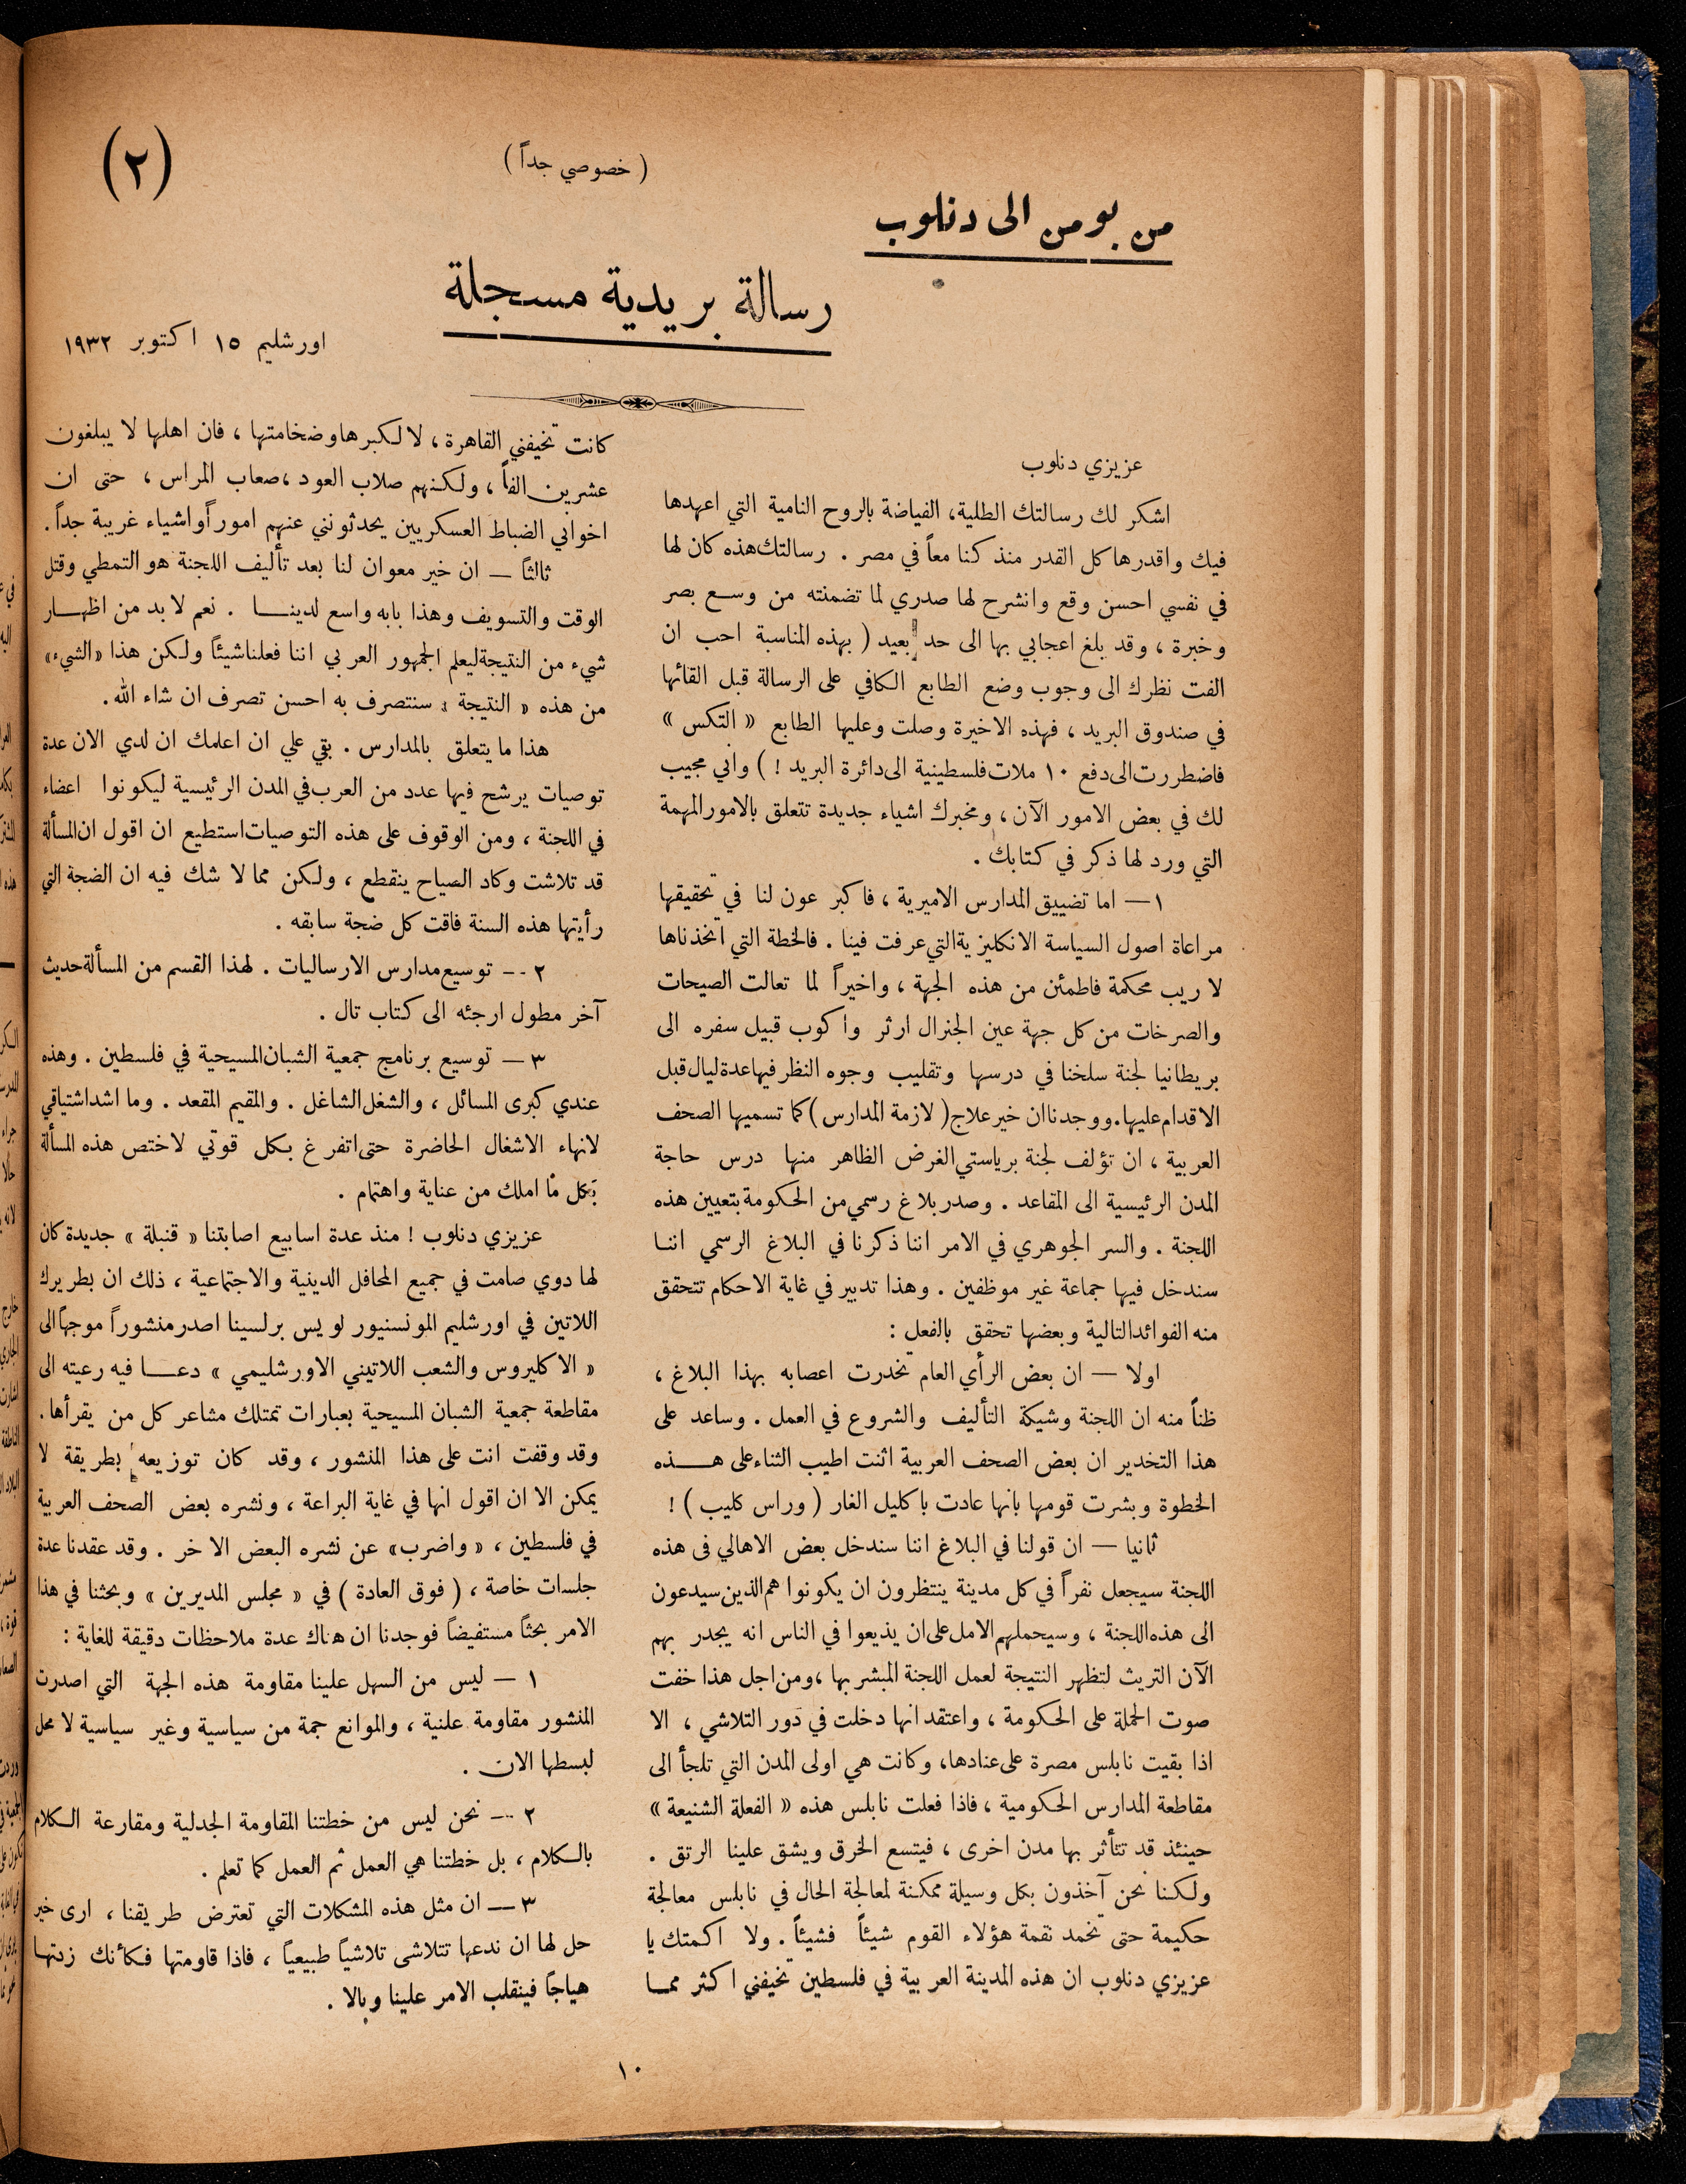 (٢)
( خصوصي جداً )
من بومن الى دنلوب
رسالة بريدية مسجلة
اورشليم ١٥ اكتوبر ١٩٣٢
عزيزي دنلوب
اشكر لك رسالتك الطلية، الفياضة بالروح النامية التي اعهدها
فيك واقدرها كل القدر منذ كنا معاً في مصر . رسالتك هذه كان لها
في نفسي احسن وقع وانشرح لها صدري لما تضمنته من وسع بصر
وخبرة ، وقد بلغ اعجابي بها الى حد بعيد ( بهذه المناسبة احب ان
الفت نظرك الى وجوب وضع الطابع الكافي على الرسالة قبل القائها
في صندوق البريد ، فهذه الاخيرة وصلت وعليها الطابع « التكس »
فاضطررت الى دفع ١٠ ملات فلسطينية الى دائرة البريد ! ) واني مجيب
لك في بعض الامور الآن ، ومخبرك اشياء جديدة تتعلق بالامور المهمة
التي ورد لها ذكر في كتابك .
١ — اما تضييق المدارس الاميرية ، فاكبر عون لنا في تحقيقها
مراعاة اصول السياسة الانكليزية التي عرفت فينا . فالخطة التي اتخذناها
لا ريب محكمة فاطمئن من هذه الجهة ، واخيراً لما تعالت الصيحات
والصرخات من كل جهة عين الجنرال ارثر واكوب قبيل سفره الى
بريطانيا لجنة سلخنا في درسها وتقليب وجوه النظر فيها عدة ليال قبل
الاقدام عليها . ووجدنا ان خير علاج ( لازمة المدارس ) كما تسميها الصحف
العربية ، ان تؤلف لجنة برياستي الغرض الظاهر منها درس حاجة
المدن الرئيسية الى المقاعد . وصدر بلاغ رسمي من الحكومة بتعيين هذه
اللجنة . والسر الجوهري في الامر اننا ذكرنا في البلاغ الرسمي اننا
سندخل فيها جماعة غير موظفين . وهذا تدبير في غاية الاحكام تتحقق
منه الفوائد التالية وبعضها تحقق بالفعل :
اولا — ان بعض الرأي العام تخدرت اعصابه بهذا البلاغ ،
ظناً منه ان اللجنة وشيكة التأليف والشروع في العمل . وساعد على
هذا التخدير ان بعض الصحف العربية اثنت اطيب الثناء على هـــذه
الخطوة وبشرت قومها بانها عادت باكليل الغار ( وراس كليب ) !
ثانيا — ان قولنا في البلاغ اننا سندخل بعض الاهالي فى هذه
اللجنة سيجعل نفراً في كل مدينة ينتظرون ان يكونوا هم الذين سيدعون
الى هذه اللجنة ، وسيحملهم الامل على ان يذيعوا في الناس انه يجدر بهم
الآن التريث لتظهر النتيجة لعمل اللجنة المبشر بها ، ومن اجل هذا خفت
صوت الحملة على الحكومة ، واعتقد انها دخلت في دور التلاشي ، الا
اذا بقيت نابلس مصرة على عنادها، وكانت هي اولى المدن التي تلجأ الى
مقاطعة المدارس الحكومية ، فاذا فعلت نابلس هذه « الفعلة الشنيعة »
حينئذ قد تتأثر بها مدن اخرى ، فيتسع الخرق ويشق علينا الرتق .
ولكننا نحن آخذون بكل وسيلة ممكنة لمعالجة الحال في نابلس معالجة
حكيمة حتى تخمد نقمة هؤلاء القوم شيئاً فشيئاً . ولا اكمتك يا
عزيزي دنلوب ان هذه المدينة العربية في فلسطين تخيفني اكثر ممـا
كانت تخيفني القاهرة ، لا لكبرها وضخامتها ، فان اهلها لا يبلغون
عشرين الفاً ، ولكنهم صلاب العود ، صعاب المراس ، حتى ان
اخواني الضباط العسكريين يحدثونني عنهم اموراً واشياء غريبة جداً .
ثالثاً — ان خير معوان لنا بعد تأليف اللجنة هو التمطي وقتل
الوقت والتسويف وهذا بابه واسع لدينـــا . نعم لا بد من اظهـــار
شيء من النتيجة ليعلم الجمهور العربي اننا فعلنا شيئاً ولكن هذا « الشيء »
من هذه « النتيجة » سنتصرف به احسن تصرف ان شاء الله .
هذا ما يتعلق بالمدارس . بقي علي ان اعلمك ان لدي الان عدة
توصيات يرشح فيها عدد من العرب في المدن الرئيسية ليكونوا اعضاء
في اللجنة ، ومن الوقوف على هذه التوصيات استطيع ان اقول ان المسألة
قد تلاشت وكاد الصياح ينقطع ، ولكن مما لا شك فيه ان الضجة التي
رأيتها هذه السنة فاقت كل ضجة سابقه .
٢ — توسيع مدارس الارساليات . لهذا القسم من المسألة حديث
آخر مطول ارجئه الى كتاب تال .
٣ — توسيع برنامج جمعية الشبان المسيحية في فلسطين . وهذه
عندي كبرى المسائل ، والشغل الشاغل . والمقيم المقعد . وما اشد اشتياقي
لانهاء الاشغال الحاضرة حتى اتفرغ بكل قوتي لاختص هذه المسألة
بكل ما املك من عناية واهتمام .
عزيزي دنلوب ! منذ عدة اسابيع اصابتنا « قنبلة » جديدة كان
لها دوي صامت في جميع المحافل الدينية والاجتماعية ، ذلك ان بطريرك
اللاتين في اورشليم المونسنيور لويس برلسينا اصدر منشوراً موجهاً الى
« الاكليروس والشعب اللاتيني الاورشليمي » دعـــا فيه رعيته الى
مقاطعة جمعية الشبان المسيحية بعبارات تمتلك مشاعر كل من يقرأها .
وقد وقفت انت على هذا المنشور ، وقد كان توزيعه بطريقة لا
يمكن الا ان اقول انها في غاية البراعة ، ونشره بعض الصحف العربية
في فلسطين ، « واضرب » عن نشره البعض الاخر . وقد عقدنا عدة
جلسات خاصة ، ( فوق العادة ) في « مجلس المديرين » وبحثنا في هذا
الامر بحثاً مستفيضاً فوجدنا ان هناك عدة ملاحظات دقيقة للغاية :
١ — ليس من السهل علينا مقاومة هذه الجهة التي اصدرت
المنشور مقاومة علنية ، والموانع جمة من سياسية وغير سياسية لا محل
لبسطها الان .
٢ — نحن ليس من خطتنا المقاومة الجدلية ومقارعة الكلام
بالكلام ، بل خطتنا هي العمل ثم العمل كما تعلم .
٣ — ان مثل هذه المشكلات التي تعترض طريقنا ، ارى خير
حل لها ان ندعها تتلاشى تلاشياً طبيعياً ، فاذا قاومتها فكأنك زدتها
هياجاً فينقلب الامر علينا وبالا .
١٠